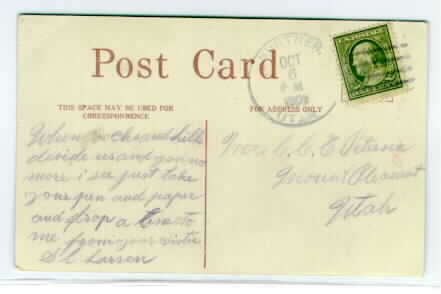 Post Card
THIS SPACE MAY BE USED FOR
CORRESPONDENCE
FOR ADDRESS ONLY
OCT
6
M
1909
UTAH
U.S. POSTAGE
When rocks and hills
divide us and you no
more i see just take
your pen and paper
and drop a line to
me from your
S L Larsen
Mrs C. C. E
Mount Pleasant
Utah